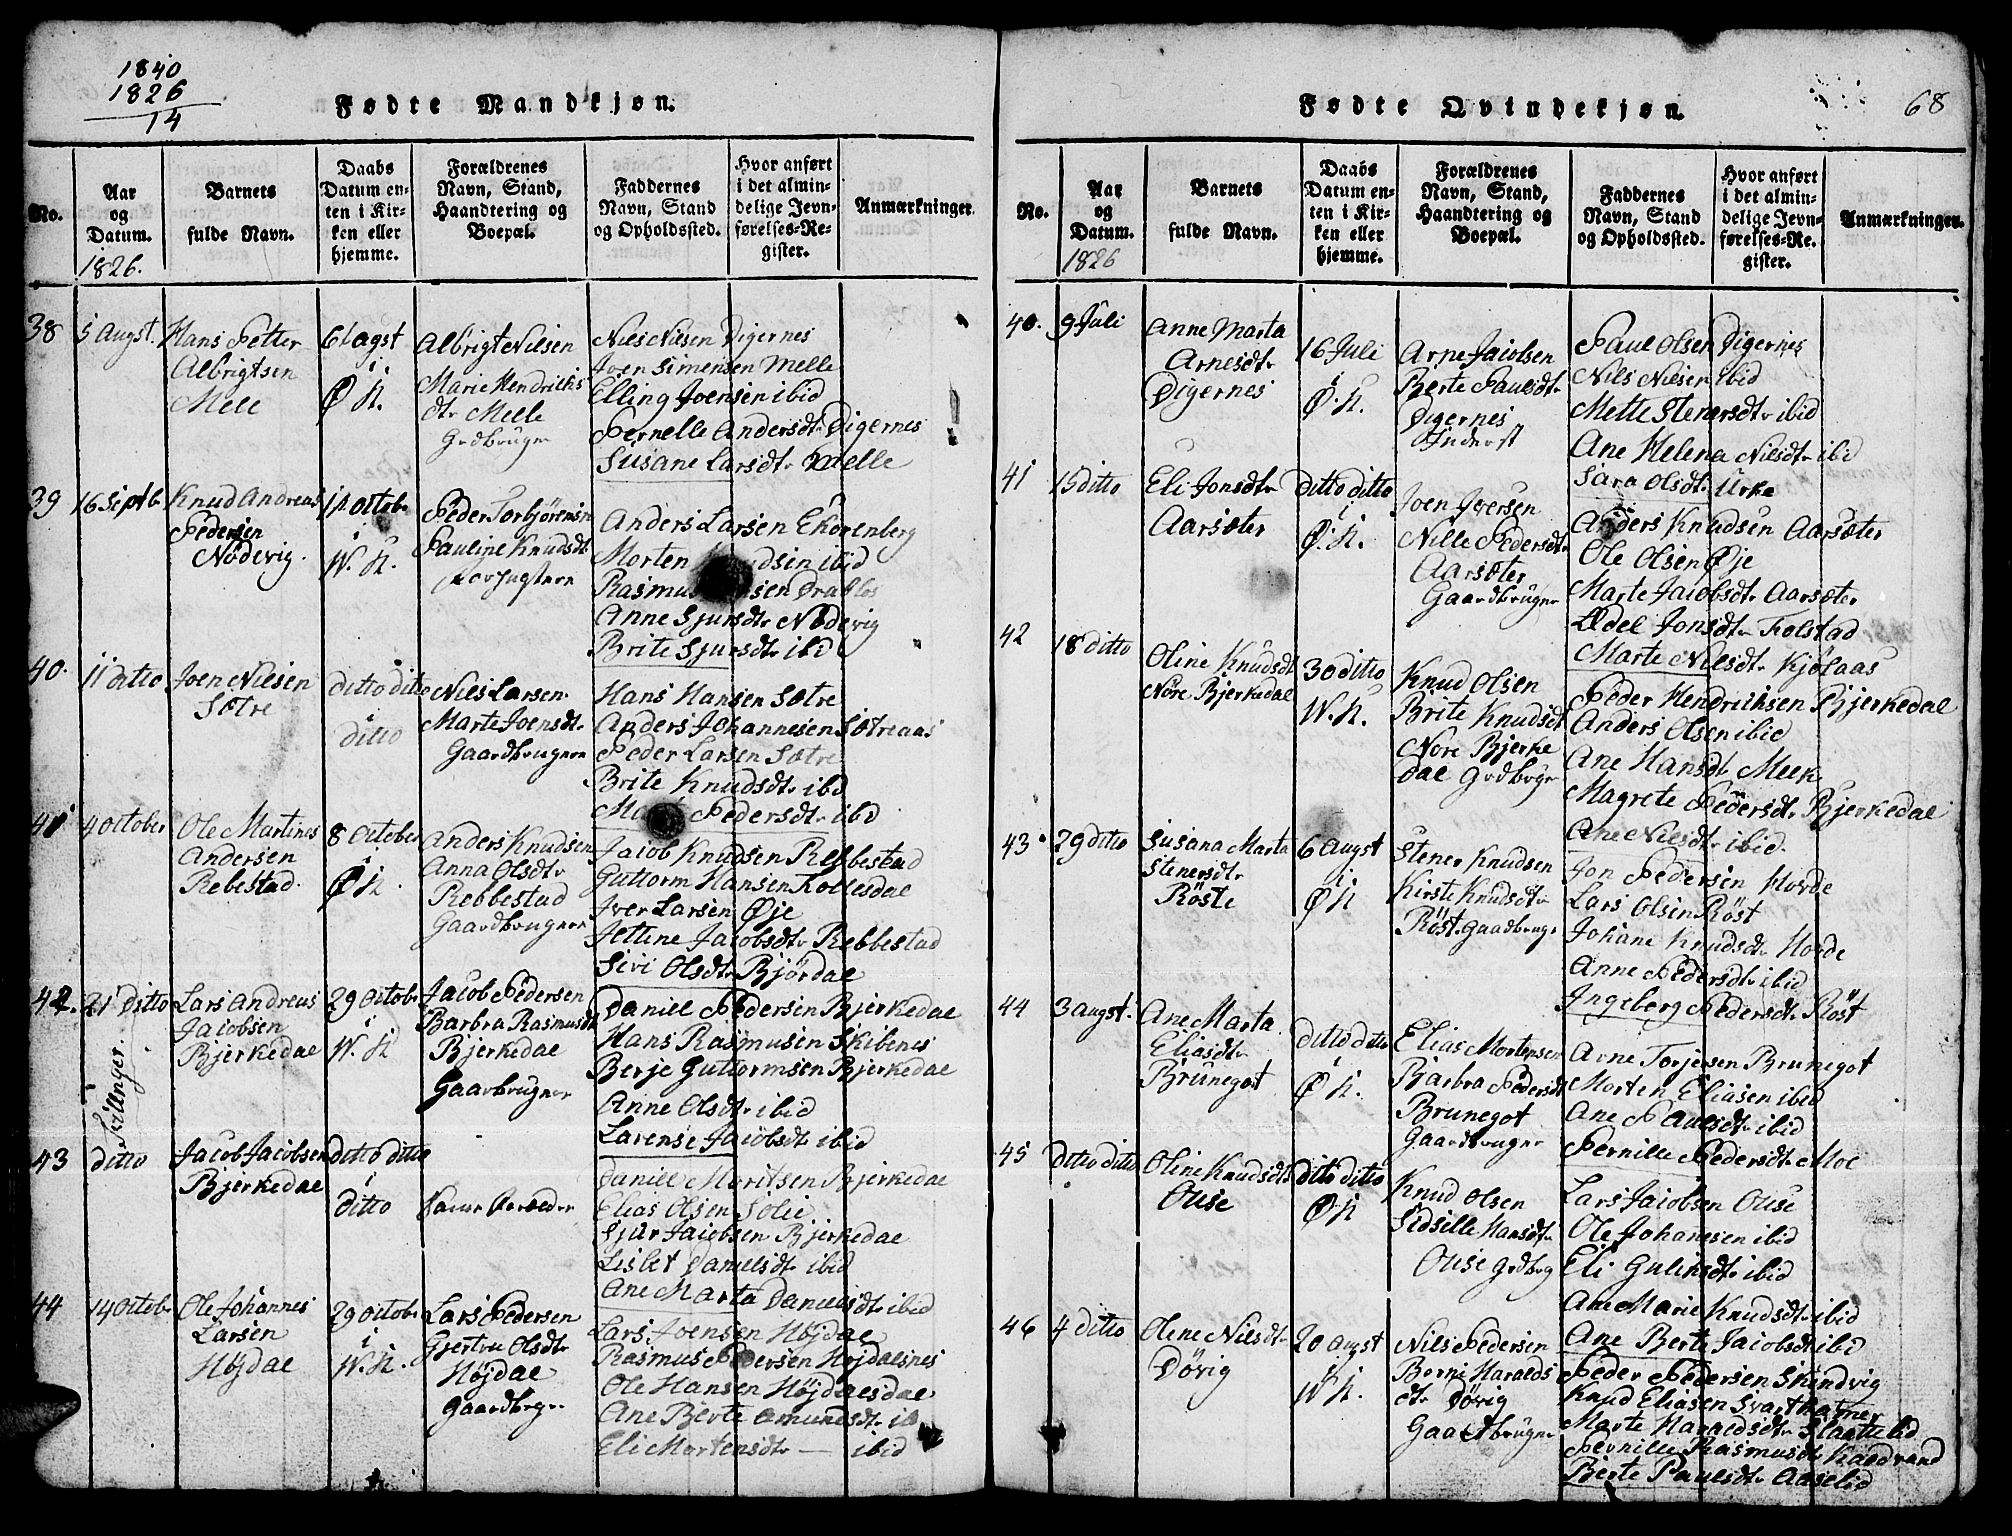 1840
1826
14
Fødte Mandkjøn.
No.
Aar
og
Datum.
1826.
Barnets
fulde Navn.
Daabs
Datum en-
ten i Kir-
ken eller
hjemme.
Forældrenes
Navn, Stand,
Haandtering og
Boepæl.
Faddernes
Navn, Stand
og Opholdssted.
Hvor anført
i det almin-
delige Jevn-
førelses-Re-
gister.
Anmærkninger.
38
5 Augst.
Hans Petter
Albrigtsen
Mele
6 augst
i
Ø K.
Albrigt Nilsen
Marie Hendriks
dtr Melle
Grdbrugre
Niels Nilsen Digernes
Joen Simensen Melle
Elling Joensen ibid
Pernelle Andersdtr Digernes
Susane Larsdtr Melle
39
16 Septb
Knud Andreas
Pedersen
Nødevig.
octobr
i
W. K.
Peder Torbjörensen
Pauline Knudsdtr
Anders Larsen Ekorenberg
Morten ibid
Rasmus Drabløs
Anne Sjursdtr Nødevig
Brite Sjursdtr ibid
40.
11 ditto
Joen Nilsen
Sætre
ditto ditto
i
ditto
Niels Larsen
Marte Joensdtr
Gaardbrugere
Hans Hansen Sætre
Anders Johannesen Sætreaas
Peder Larsen Sætre
Brite Knudsdtr ibd
Pedersdtr ibd
41
4 october
Ole Martines
Andersen
Rebestad.
8 October
i
Ø K.
Anders Knudsen
Anna Olsdtr
Rebbestad
Gaardbrugere
Jacob Knudsen Rebbestad
Guttorm Hansen Kollesdal
Iver Larsen Øje
Jettine Jacobsdtr Rebbestad
Sivi Olsdtr Bjørdal
42.
21 Ditto
Tvillinger.
Lars Andreas
Jacobsen
Bjerkedal
29 Octobr
i
W. K
Jacob Pedersen
Barbra Rasmusdtr
Bjerkedal
Gaarbrugner
Daniel Pedersen Bjerkedal
Hans Rasmusen Skibenes
Berje Guttormsen Bjerkedal
Anne Olsdtr ibid
Larense Jacobsdtr ibid
43
ditto
Jacob Jacobsen
Bjerkedal
Ditto ditto
i
ditto
Same Forælder
Daniel Moritsen Bjerkedal
Elias Olsen Solie
Sjur Jacobsen Bjerkedal
Lislet Danielsdtr ibid
Ane Marta Danielsdtr ibid
44
14 Octobr
Ole Johannes
Larsen
Højdal
29 Octobr
i
W. K.
Lars Pedersen
Gjertru Olsdtr
Højdal
Gaardbrger
Lars Joensen Højdal
Rasmus Pedersen Højdalsnes
Ole Hansen Højdalsdal
Ane Berte Amundsdtr ib
Eli Mortensdtr — ibid
68
Fødte Qvindekjøn.
No.
Aar
og
Datum.
1826
Barnets
fulde Navn.
Daabs
Datum en-
ten i Kir-
ken eller
hjemme.
Forældrenes
Navn, Stand,
Haandtering og
Boepæl.
Faddernes
Navn, Stand
og Opholdssted.
Hvor anført
i det almin-
delige Jevn-
førelses-Re-
gister.
Anmærkninger.
40.
9 Juli
Anne Marta
Arnesdtr
Digernes
16 Juli
i
Ø. K.
Arne Jacobsen
Berte Paulsdtr
Digernes
Inderst
Paul Olsen Digernes
Nils Nilsen ibid
Mette Stenersdtr ibid
Ane Helena Nilsdtr ibid
Sara Olsdtr Urke
41
15 ditto
Eli Jonsdtr
Aarsæter
ditto ditto
i
Ø. K.
Joen Iversen
Nille Pedersdtr
Aarsæter
Gaardbruger
Anders Knudsen Aarsæter
Ole Olsen Øje
Marte Jacobsdtr Aarsæter
Edel Jonsdtr Folstad
Marte Nilsdtr Kjølaas
42
18 ditto
Oline Knudsdtr
Nore Bjerkedal
30 ditto
W. K.
Knud Olsen
Brite Knudsdtr
Nore Bjerke
dal Grdbrgr
Peder Hendriksen Bjerkedal
Anders Olsen ibid
Ane Hansdtr Meek
Magrete Pedersdtr Bjerkedal
Ane Nilsdtr ibid.
43
29 ditto
Susana Marta
Stenersdtr
Røste
6 Augst
i
Ø K
Stener Knudsen
Kirste Knudsdtr
Røst Gaadbrugr
Jon Pedersen Horde
Lars Olsen Røst
Johane Knudsdtr Horde
Anne Pedersdtr ibid
Ingeberg Pedersdtr Røst
44
3 augst.
Ane Marta
Eliasdtr
Brunegot
ditto ditto
i
Ø K.
Elias Mortensen
Barbra Pedersdtr
Brunegot
Gaardbruger
Arne Torjesen Brunegot
Morten Eliasen ibid
Ane Paulsdtr ibid
Pernille Pedersdtr Moe
45
Ditto ditto
Oline Knudsdtr
Ouse
ditto ditto
i
Ø K
Knud Olsen
Sidsille Hansdtr
Ouse Grdbrg
Lars Jacobsen Ouse
Ole Johansen ibid
Eli ibid
Ane Marie Knudsdtr ibid
Ane Berte Jacobsdtr ibid
46
4 ditto
Olene Nilsdtr
Døvig
20 augst
i
W K.
Nils Pedersen
Berni Haralds
dtr Døvig
Gaardbruger
Peder Pedersen Skindvig
Knud Eliasen Svartholmer
Marte Haraldsdtr Slaattelid
Pernille Rasmusdtr Kaldvand
Berte Paulsdtr Aaselid